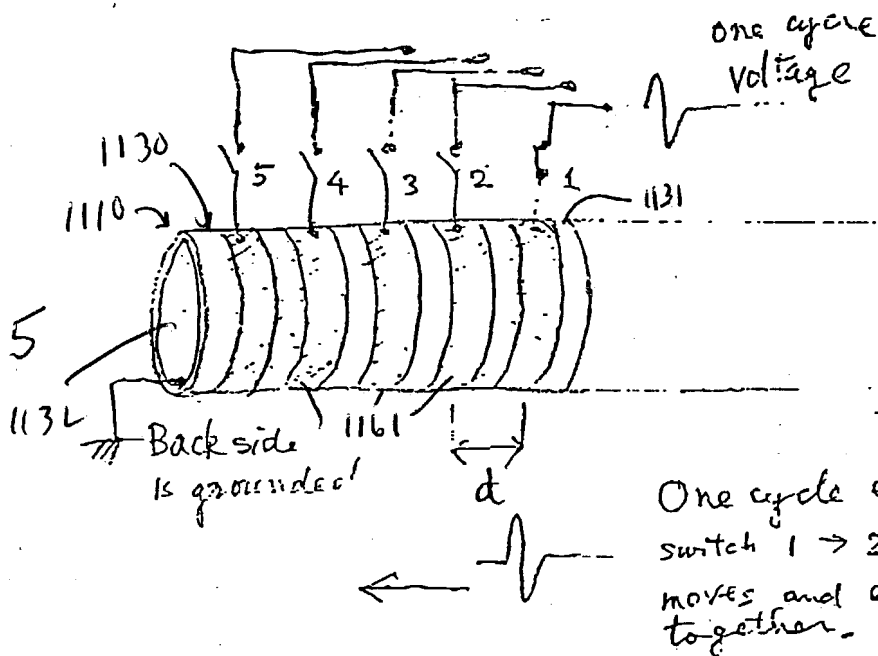 one cycle
voltage
1130
1110
5 4 3 2 1
1131
5
1132
1161
Back side
is grounded
d
One cycle
switch 1 → 2
moves and
together.